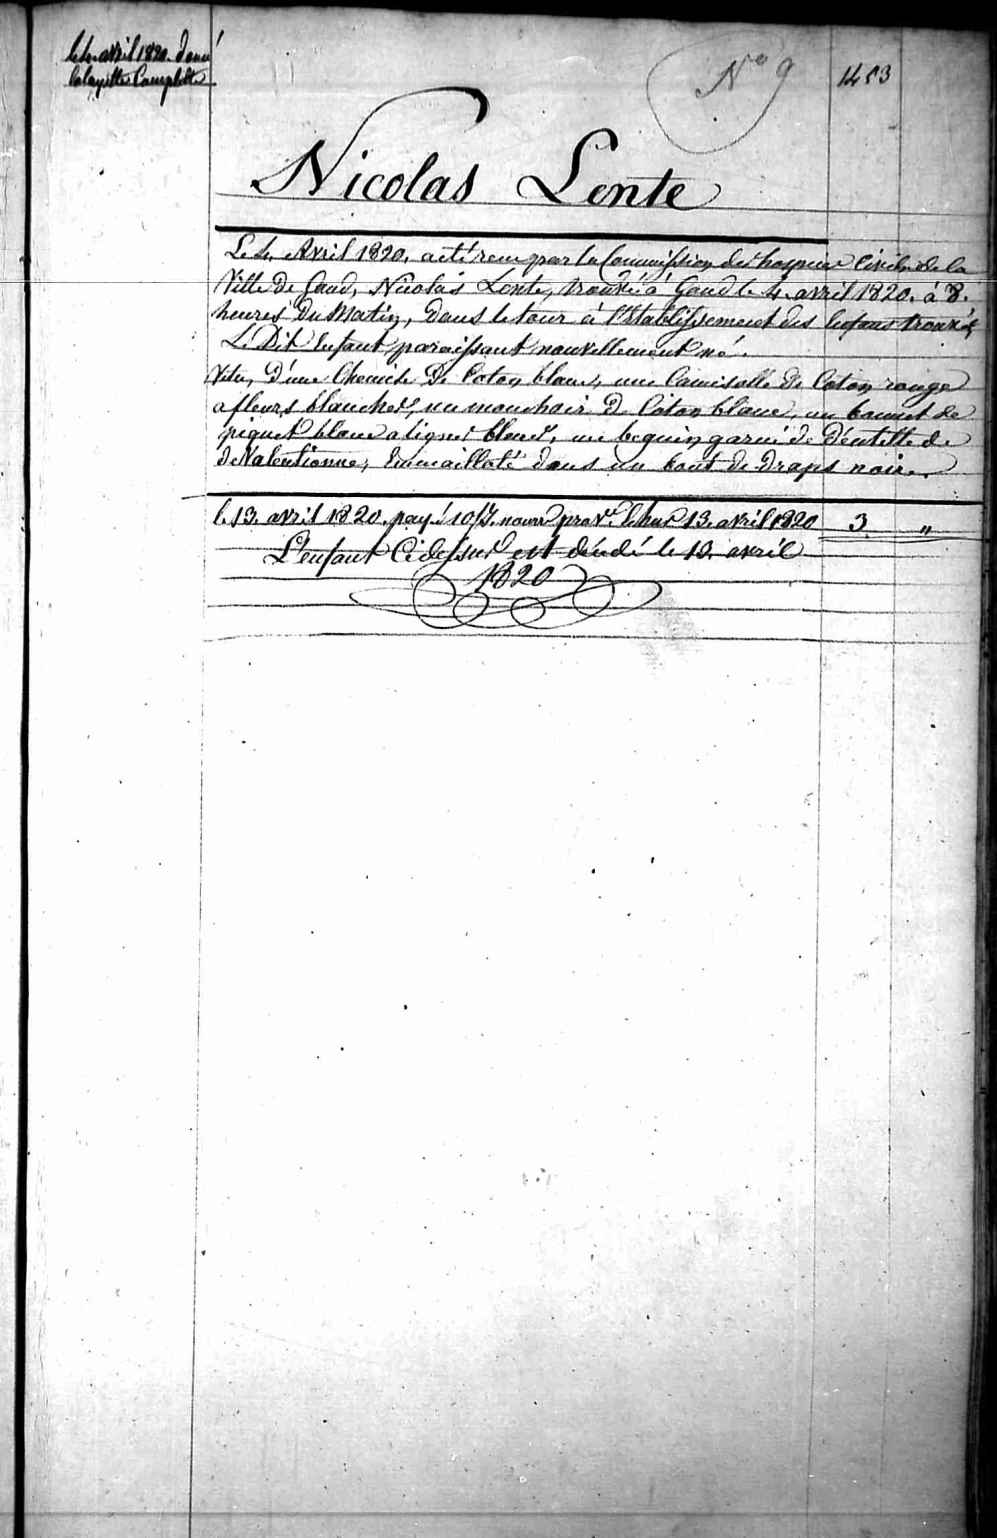 le 4 avril 1820. donné
la layette Complette
N° 9
1453
Nicolas Lente
Le 4. Avril 1820. a été recu par la Commission des hospices Civils de la
Ville de Gand, Nicolas Lente, trouvé à Gand le 4. avril 1820. à 8.
heures Du Matin, Dans le tour à l'Etablissement des Enfans trouvés
Le Dit Enfant paraissant nouvellement né.
Vetu, D'une Chemise De Coton blanc, une Camisolle De Coton rouge
a fleurs blanches, un mouchoir De Coton blanc, un bonnet de
piquet blanc a lignes bleues, un beguin garni de Déntelle de
de Valentienne, Emmailloté dans un bout de Draps noir.
le 13. avril 1820. payé 10 13. avril 1820 3 "
L'enfant Cidessus est décédé le 13. avril
1820